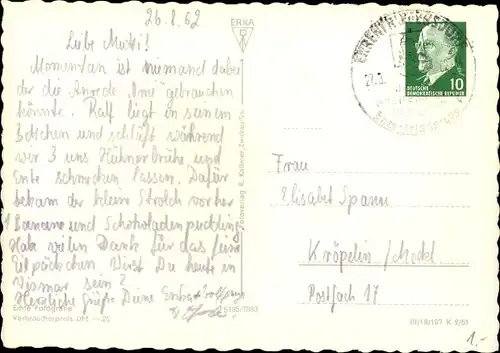 26.8.62
Liebe Mutti!
Momentan ist niemand dabei
der die Anrede "Omi" gebrauchen
könnte. Ralf liegt in seinem
Bettchen und schläft während
wir 3 uns Hühnerbrühe und
Ente schmecken lassen. Dafür
bekam der kleine Strolch vorher
1 Banane und Schokoladenpudding.
Hab vielen Dank für das feine
Eilpäckchen. Wirst Du heute in
Wismar sein?
Herzliche Grüße Deine
Echte Fotografie
Verbraucherpreis DM -.25
ERKA
EHRENFRIEDERSDORF
10
DEUTSCHE
DEMOKRATISCHE REPUBLIK
Frau
Elisabet Spann
Kröpelin/Meckl.
Postfach 17
III/18/197 K 2/61
1.-